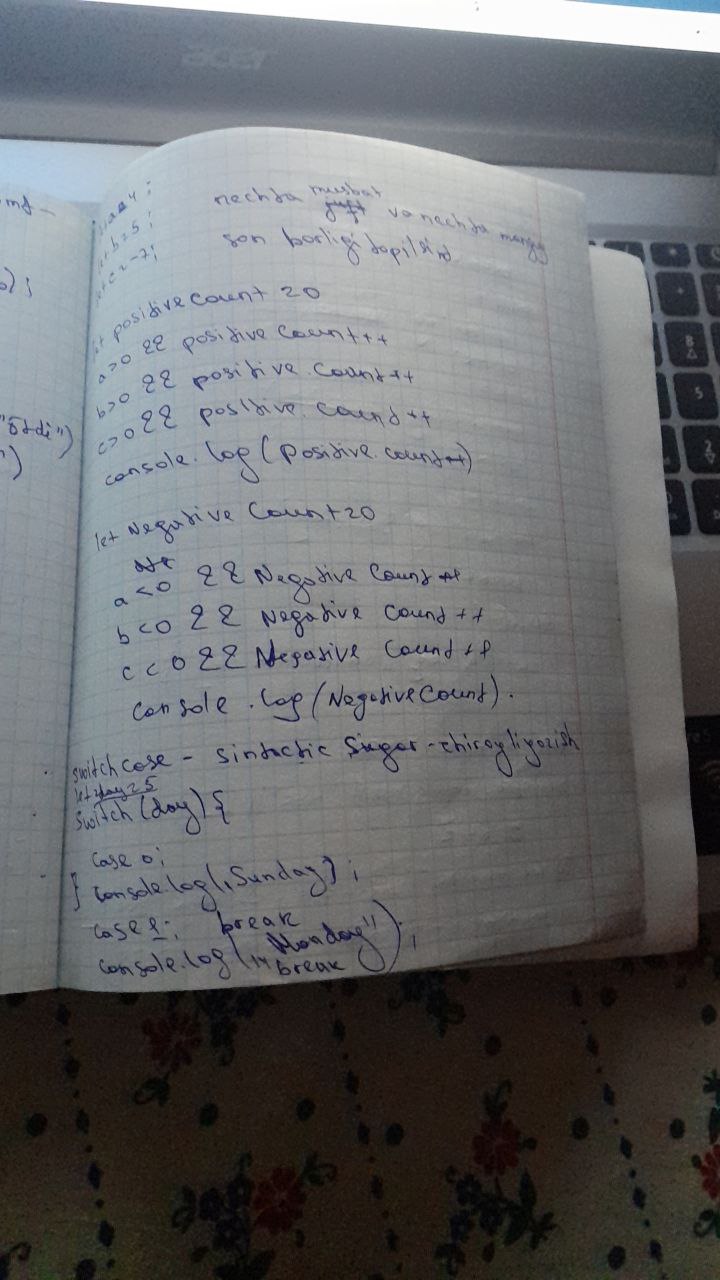 acer
omt-
);
"O'tdi")
")
let a=4;
let b=5;
let c=-7;
nechta musbat
juft va nechta manfiy
son borligi topilsin
let positiveCount=0
a>0 && positiveCount++
b>0 && positive.Count++
c>0 && positive.count++
console.log(positive.count++)
let Negative Count=0
a<0 && Negative Count++
b<0 && Negative Count++
c<0 && Negative Count++
console.log(NegativeCount).
switch case - sintactic Sugar - chiroyli yozish
let day=5
switch (day) {
case 0;
} console.log(,,Sunday");
case 1; break
console.log(,,Monday");
break